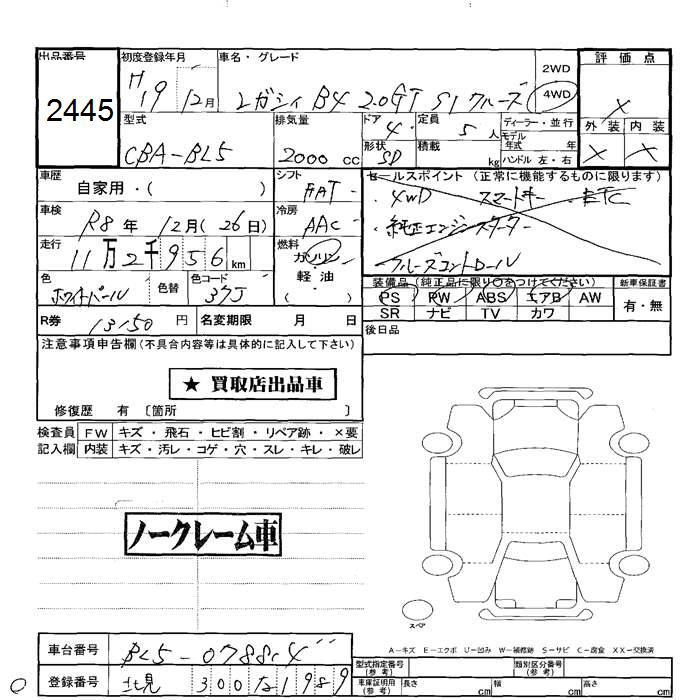 出品番号 初度登録年月 車名・グレード 評価点
2445 H19 12月 レガシィ B4 2.0GT S1クルーズ 2WD 4WD ×
型式 排気量 ドア 4 定員 5人 ディーラー・並行 外装 内装
CBA-BL5 2000cc 形状 SD 積載 kg モデル年式 年 × ×
ハンドル 左・右
車歴 自家用・( ) シフト FAT セールスポイント (正常に機能するものに限ります)
・4WD スマートキー ・ETC
車検 R8年 12月(26日) 冷房 AAC ・純正エンジンスターター
走行 11万2千956km 燃料 ガソリン・軽油・( ) クルーズコントロール
色 ホワイトパール 色替 色コード 37J
装備品 (純正品に限り○をつけてください) 新車保証書
PS PW ABS エアB AW 有・無
SR ナビ TV カワ
R券 13150円 名変期限 月 日 後日品
注意事項申告欄(不具合内容等は具体的に記入して下さい)
★ 買取店出品車
修復歴 有 〔箇所 〕
検査員 FW キズ・飛石・ヒビ割・リペア跡・×要
記入欄 内装 キズ・汚レ・コゲ・穴・スレ・キレ・破レ
ノークレーム車
スペア
A-キズ E-エクボ U-凹み W-補修跡 S-サビ C-腐食 XX-交換済
車台番号 BL5-078814
登録番号 北見 300 な 1989
型式指定番号(参考) 類別区分番号(参考)
車庫証明用(参考) 長さ cm 幅 cm 高さ cm